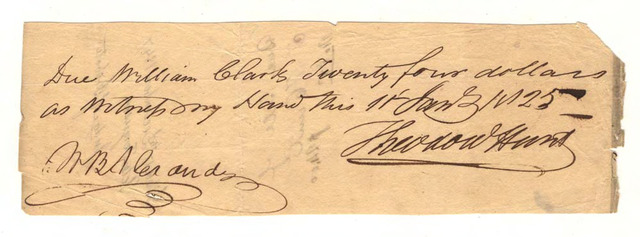 Due William Clark Twenty four dollars
as witness my Hand this 1st Jany 1825
Theodore Hunt
W B Alexander